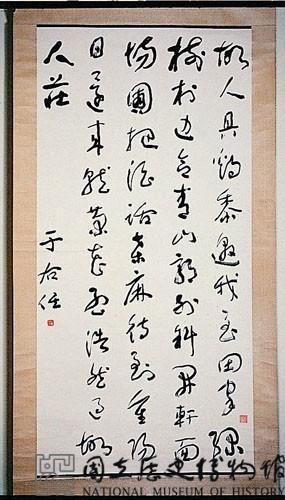 故人具鷄黍邀我至田家綠
樹村邊合青山郭外斜開軒面
場圃把酒話桑麻待到重陽
日還來就菊花孟浩然過故
人莊
于右任
國立歷史博物館
NATIONAL MUSEUM OF HISTORY